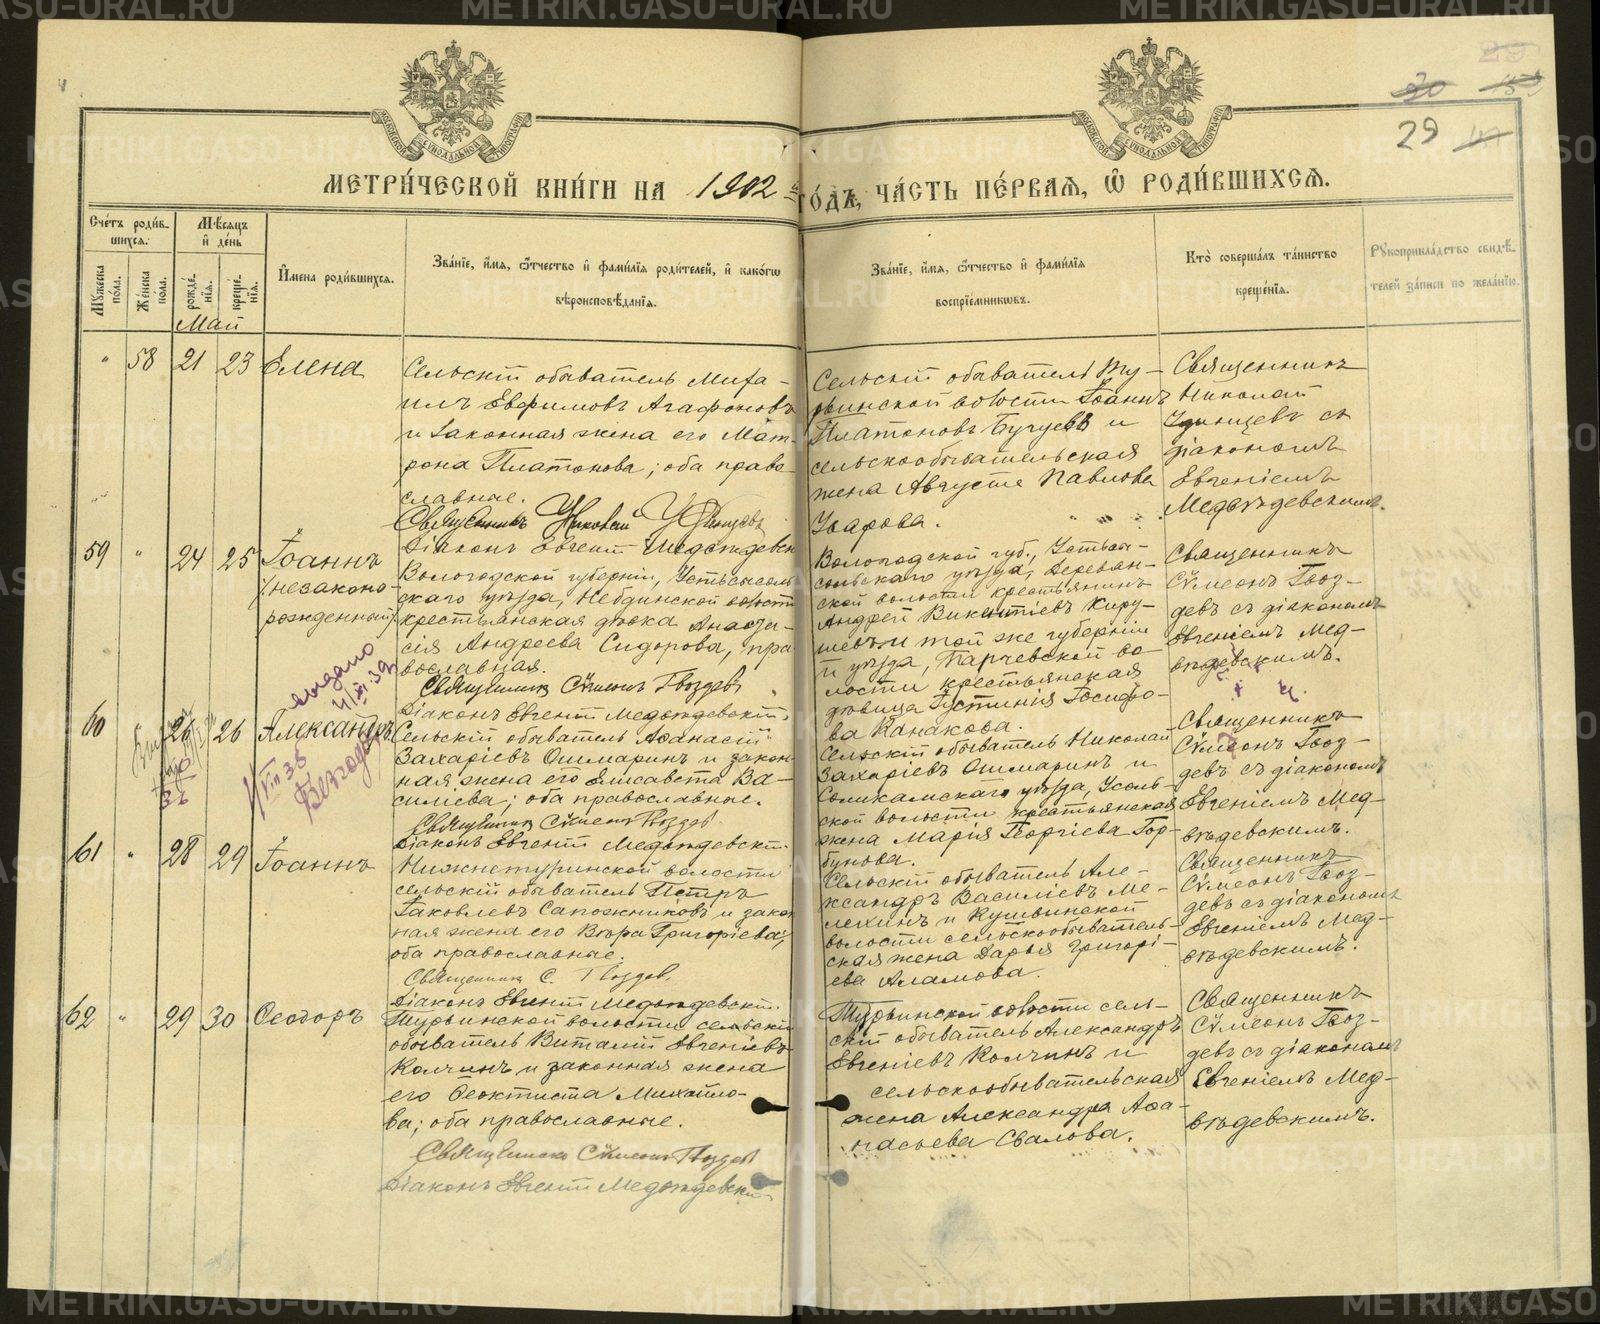 METRIKI.GASU-URAL.RU
29
МОСКОВСКОЙ СѴНОДАЛЬНОЙ ТИПОГРАФІИ
МОСКОВСКОЙ СѴНОДАЛЬНОЙ ТИПОГРАФІИ
МЕТРИ́ЧЕСКОЙ КНИ́ГИ НА 1902 ГО́ДЪ, ЧА́СТЬ ПЕ́РВАЯ, Ѡ РОДИ́ВШИХСЯ.
Сче́тъ роди́вшихся.
Му́жеска по́ла.
Же́нска по́ла.
Мѣ́сяцъ и де́нь
рожде́нія.
креще́нія.
И́мена роди́вшихся.
Зва́ніе, и́мя, ѻ́тчество и фами́лія роди́телей, и како́гѡ
вѣроисповѣ́данія.
Зва́ніе, и́мя, ѻ́тчество и фами́лія
воспріе́мниковъ.
Кто̀ соверша́лъ та́инство
креще́нія.
Рꙋкоприкла́дство свидѣ́-
телей за́писи по жела́нію.
Май
" 58 21 23 Елена
Сельскій обыватель Миха-
илъ Евфимовъ Агафоновъ
и законная жена его Мат-
рона Платонова; оба право-
славные.
Священникъ Николай Удинцевъ
Діаконъ Евгеній Медвѣдевск
Сельскій обыватель Ту-
рьинской волости Іоаннъ
Платоновъ Бугуевъ и
сельскообывательская
жена Августа Павлова
Уварова.
Священникъ
Николай
Удинцевъ съ
діакономъ
Евгеніемъ
Медвѣдевскимъ.
59 " 24 25 Іоаннъ
(незаконо-
рожденный)
Вологодской губерніи, Устьсысоль-
скаго уѣзда, Небдинской волости
крестьянская дѣвка Анаста-
сія Андреева Сидорова, пра-
вославная.
Священникъ Сѵмеонъ Гвоздевъ
Діаконъ Евгеній Медвѣдевскій.
Вологодской губ., Устьсы-
сольскаго уѣзда, Деревян-
ской волости крестьянинъ
Андрей Викентіевъ Киру-
шевъ и той же губерніи
и уѣзда, Парчевской во-
лости крестьянская
дѣвица Іустинія Іосифо-
ва Канакова.
Священникъ
Сѵмеонъ Гвоз-
девъ съ діакономъ
Евгеніемъ Мед-
вѣдевскимъ.
60 " 26 26 Александръ
Сельскій обыватель Аѳанасій
Захаріевъ Ошмаринъ и закон-
ная жена его Елисавета Ва-
силіева; оба православные.
Священникъ Сѵмеонъ Гвоздев.
Діаконъ Евгеній Медвѣдевскій.
Сельскій обыватель Николай
Захаріевъ Ошмаринъ и
Соликамскаго уѣзда, Усоль-
ской волости крестьянская
жена Марія Георгіева Гор-
бунова.
Священникъ
Сѵмеонъ Гвоз-
девъ съ діакономъ
Евгеніемъ Мед-
вѣдевскимъ.
61 " 28 29 Іоаннъ
Нижнетуринской волости
сельскій обыватель Петръ
Іаковлевъ Сапожниковъ и закон
ная жена его Вѣра Григоріева;
оба православные.
Священникъ С. Гвоздев.
Діаконъ Евгеній Медвѣдевскій.
Сельскій обыватель Але-
ксандръ Василіевъ Ме-
лехинъ и Кушвинской
волости сельскообыватель-
ская жена Дарья Григорі-
ева Аламова.
Священникъ
Сѵмеонъ Гвоз-
девъ съ діакономъ
Евгеніемъ Мед-
вѣдевскимъ.
62 " 29 30 Ѳеодоръ
Турьинской волости сельскій
обыватель Виталій Евгеніевъ
Колчинъ и законная жена
его Ѳеоктиста Михайло-
ва; оба православные.
Священникъ Сѵмеонъ Гвоздев
Діаконъ Евгеній Медвѣдевскій
Турьинской волости сель-
скій обыватель Александръ
Евгеніевъ Колчинъ и
сельскообывательская
жена Александра Аѳа-
насьева Свалова.
Священникъ
Сѵмеонъ Гвоз-
девъ съ діакономъ
Евгеніемъ Мед-
вѣдевскимъ.